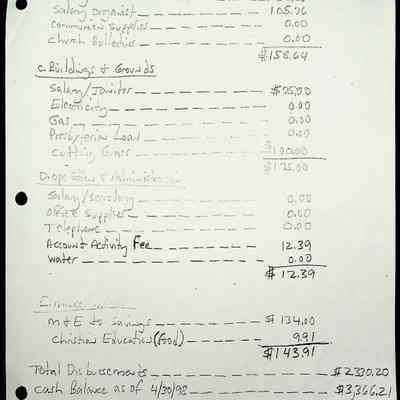 Salary Organist 105.76
Communion Supplies 0.00
Church Bulletins 0.00
$158.64
C. Buildings & Grounds
Salary/Janitor $25.00
Electricity 0.00
Gas 0.00
Presbyterian Loan 0.00
Cutting Grass $100.00
$125.00
D. Operation & Administration
Salary/Secretary 0.00
Office Supplies 0.00
Telephone 0.00
Account Activity Fee 12.39
Water 0.00
$12.39
E.
M&E to Savings $134.00
Christian Education (food) 9.91
$143.91
Total Disbursements $2330.20
Cash Balance as of 4/30/98 $3,366.21